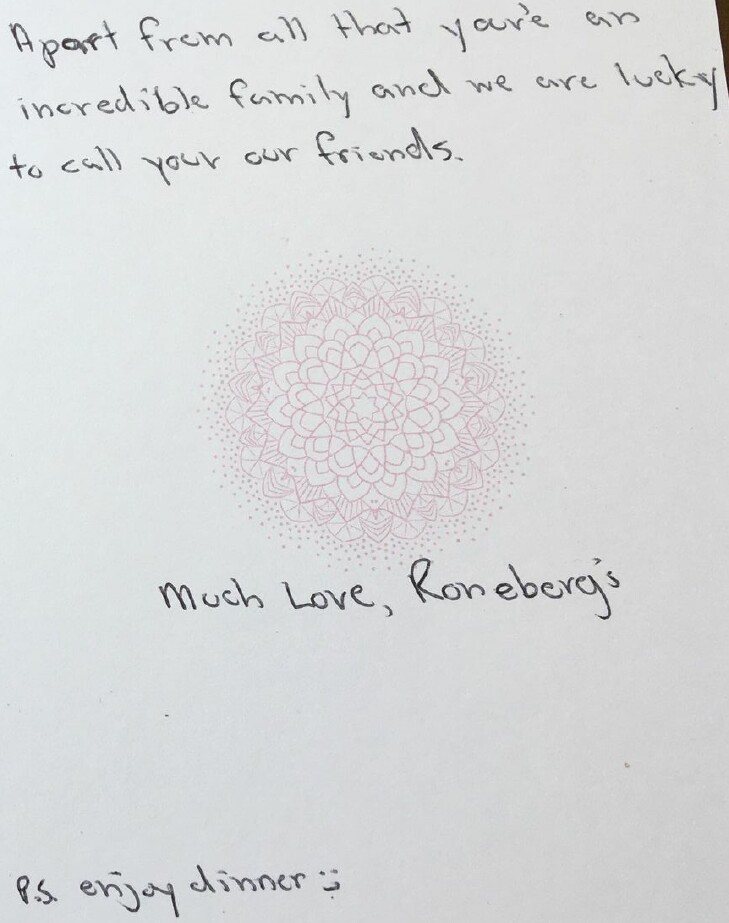 Apart from all that your'e an
incredible family and we are lucky
to call your our friends.
Much Love, Roneberg's
P.S. enjoy dinner :)